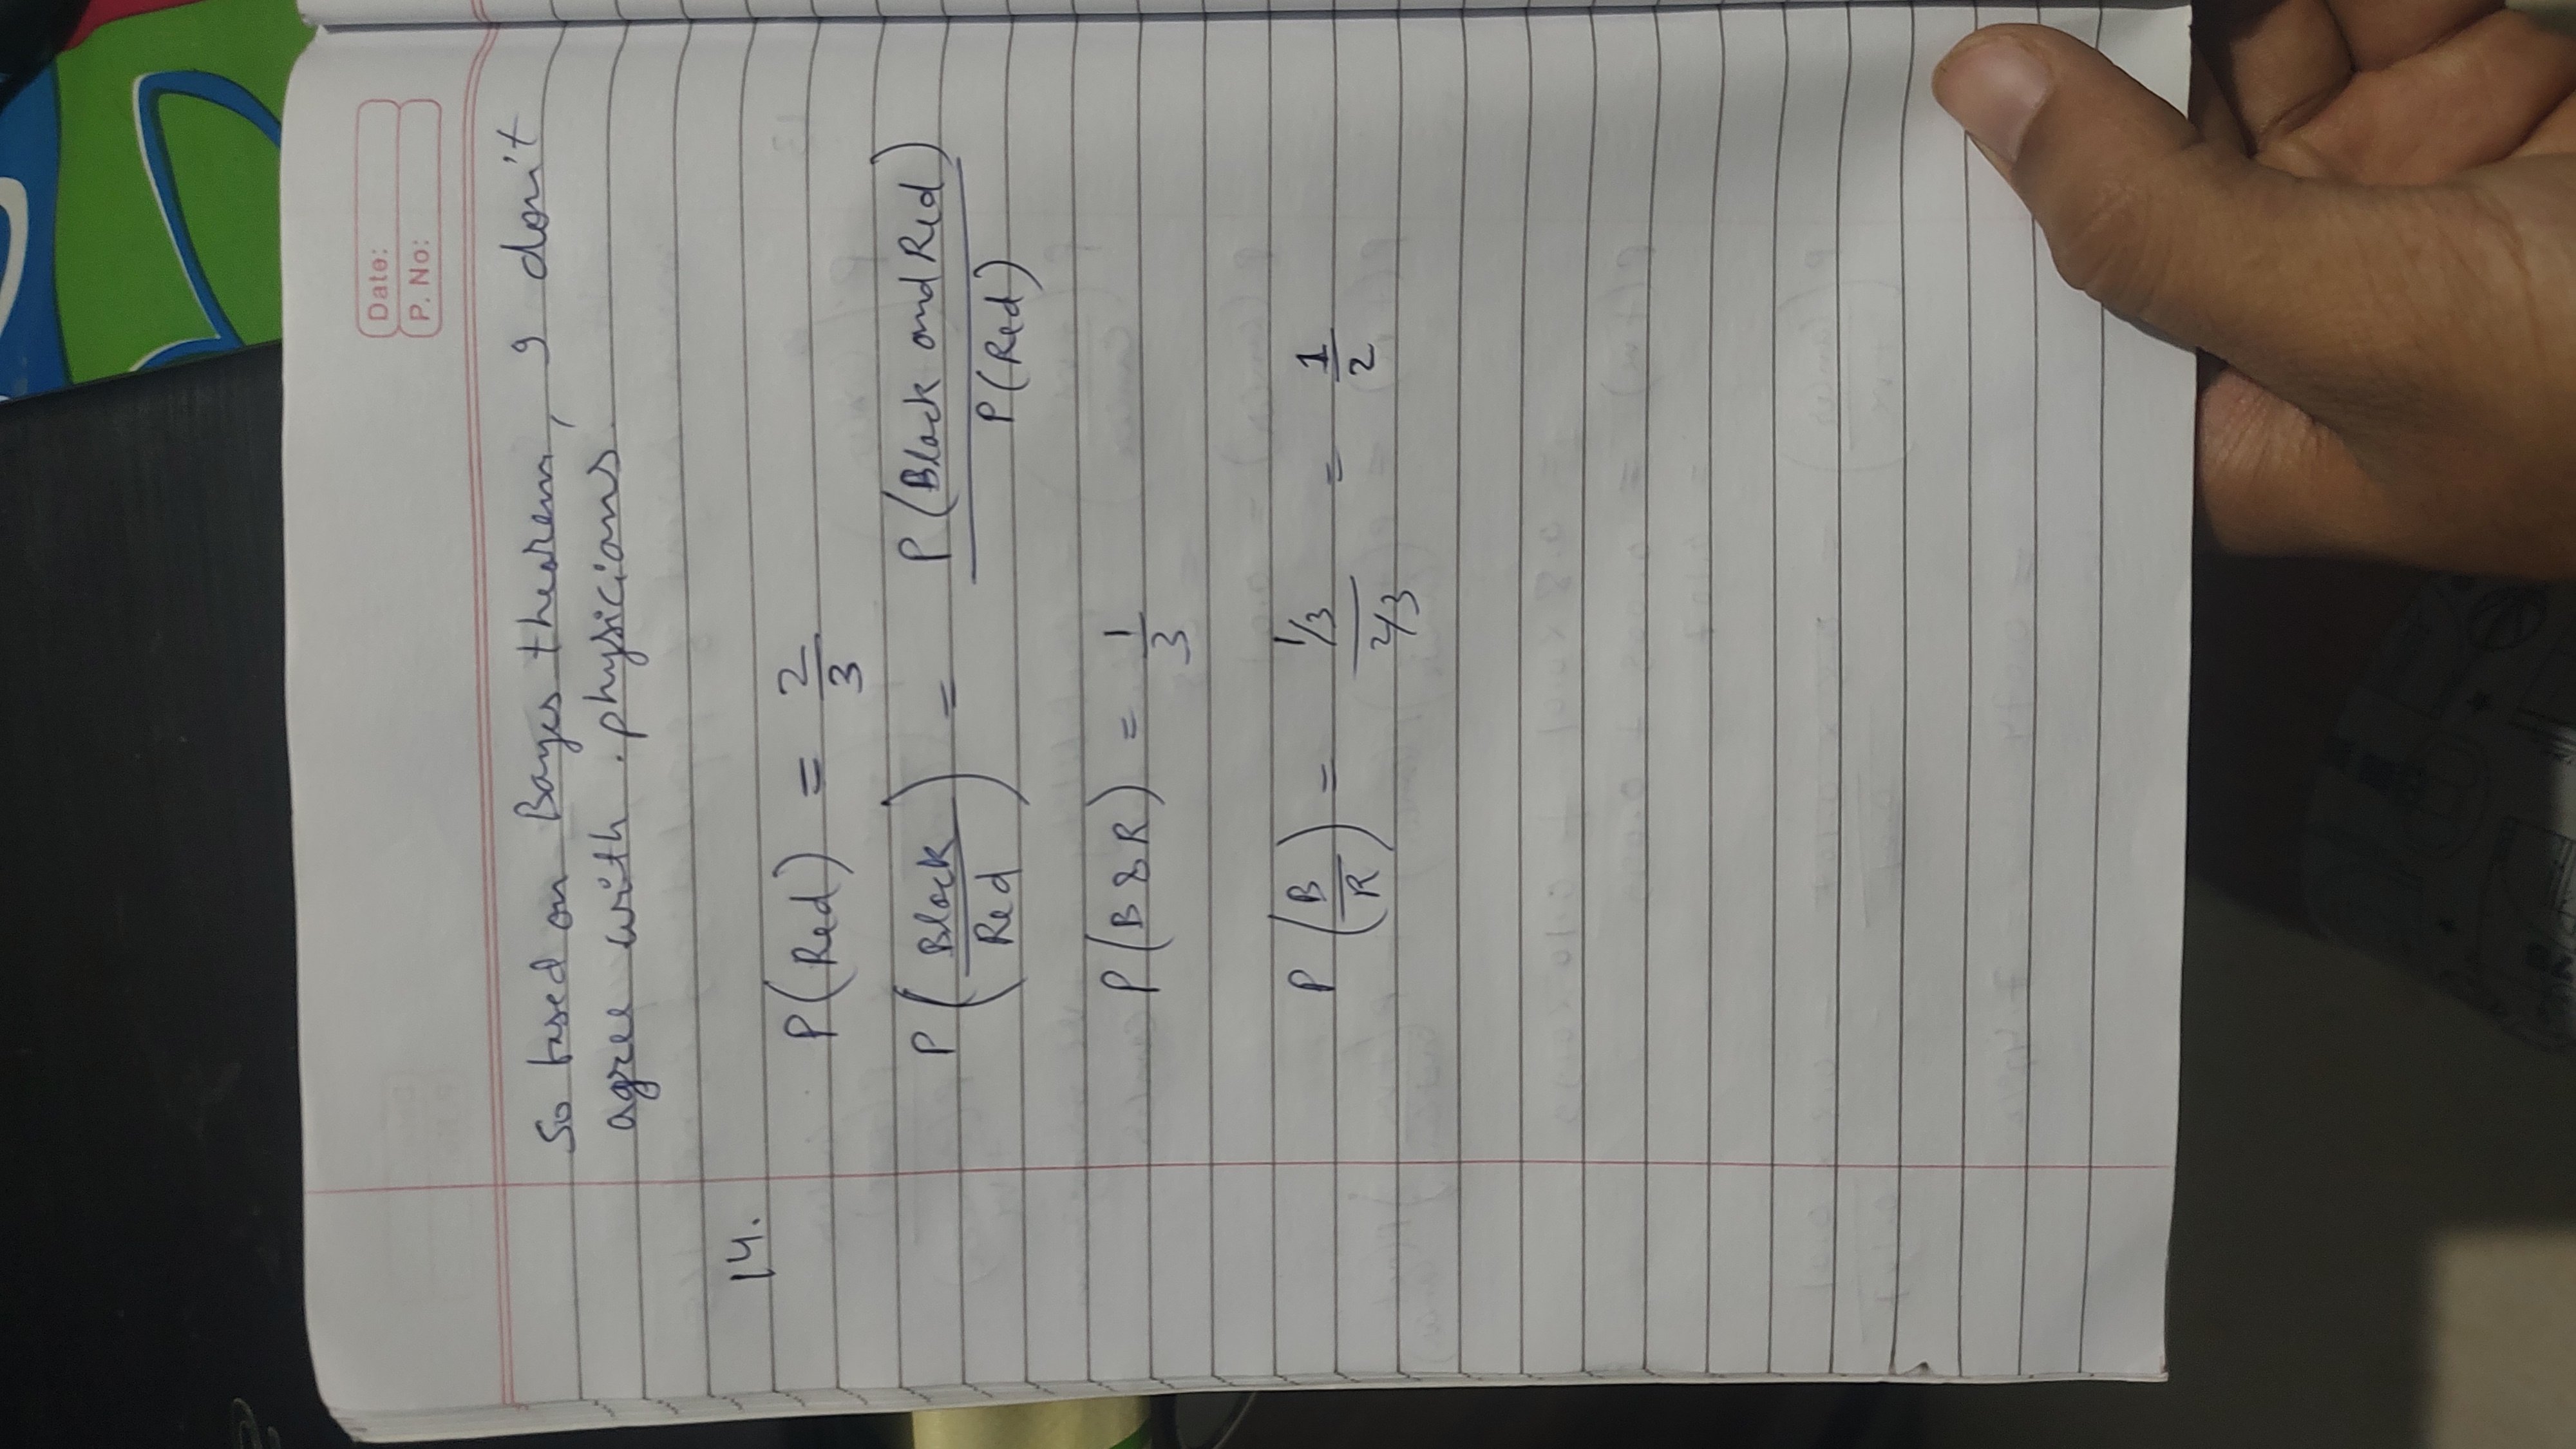 Date:
P. No:
So based on Bayes theorem, I don't
agree with physicians.
14.
P(Red) = 2/3
P(Black/Red) = P(Black and Red)/P(Red)
P(B & R) = 1/3
P(B/R) = 1/3/2/3 = 1/2